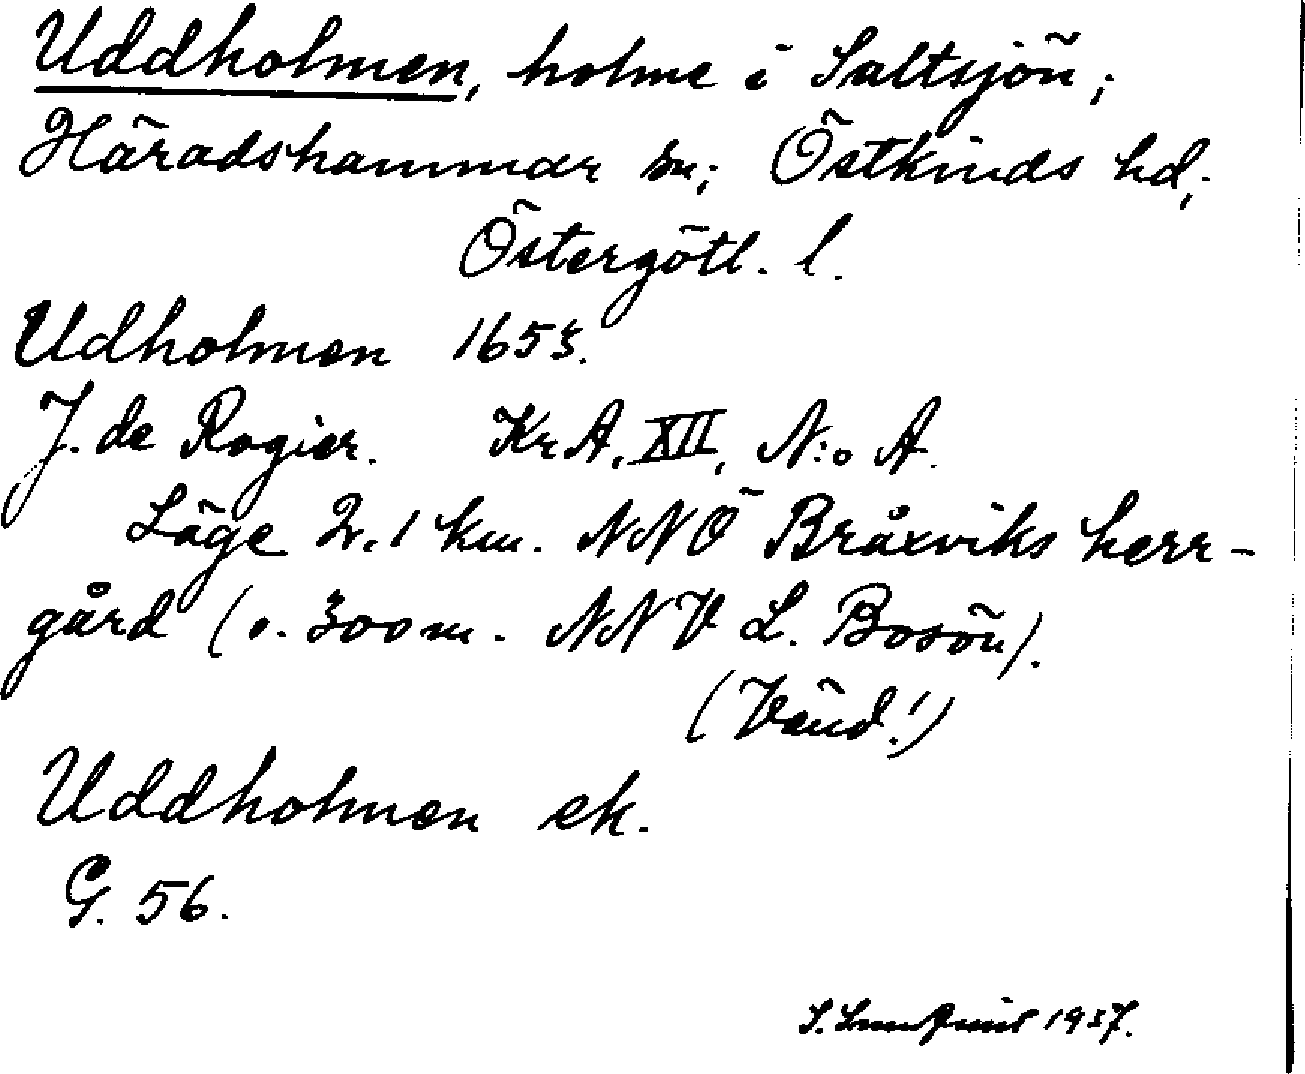 Uddholmen, holme i Saltsjön;
Häradshammar sn; Östkinds hd;
Östergötl. l.
Udholmen 1653.
J. de Rogier. KrA, XII, N:o A.
Läge 2,1 km. NNÖ Bråxviks herr-
gård (o. 300 m. NNV L. Bosön).
(Vänd!)
Uddholmen ek.
G. 56.
1937.